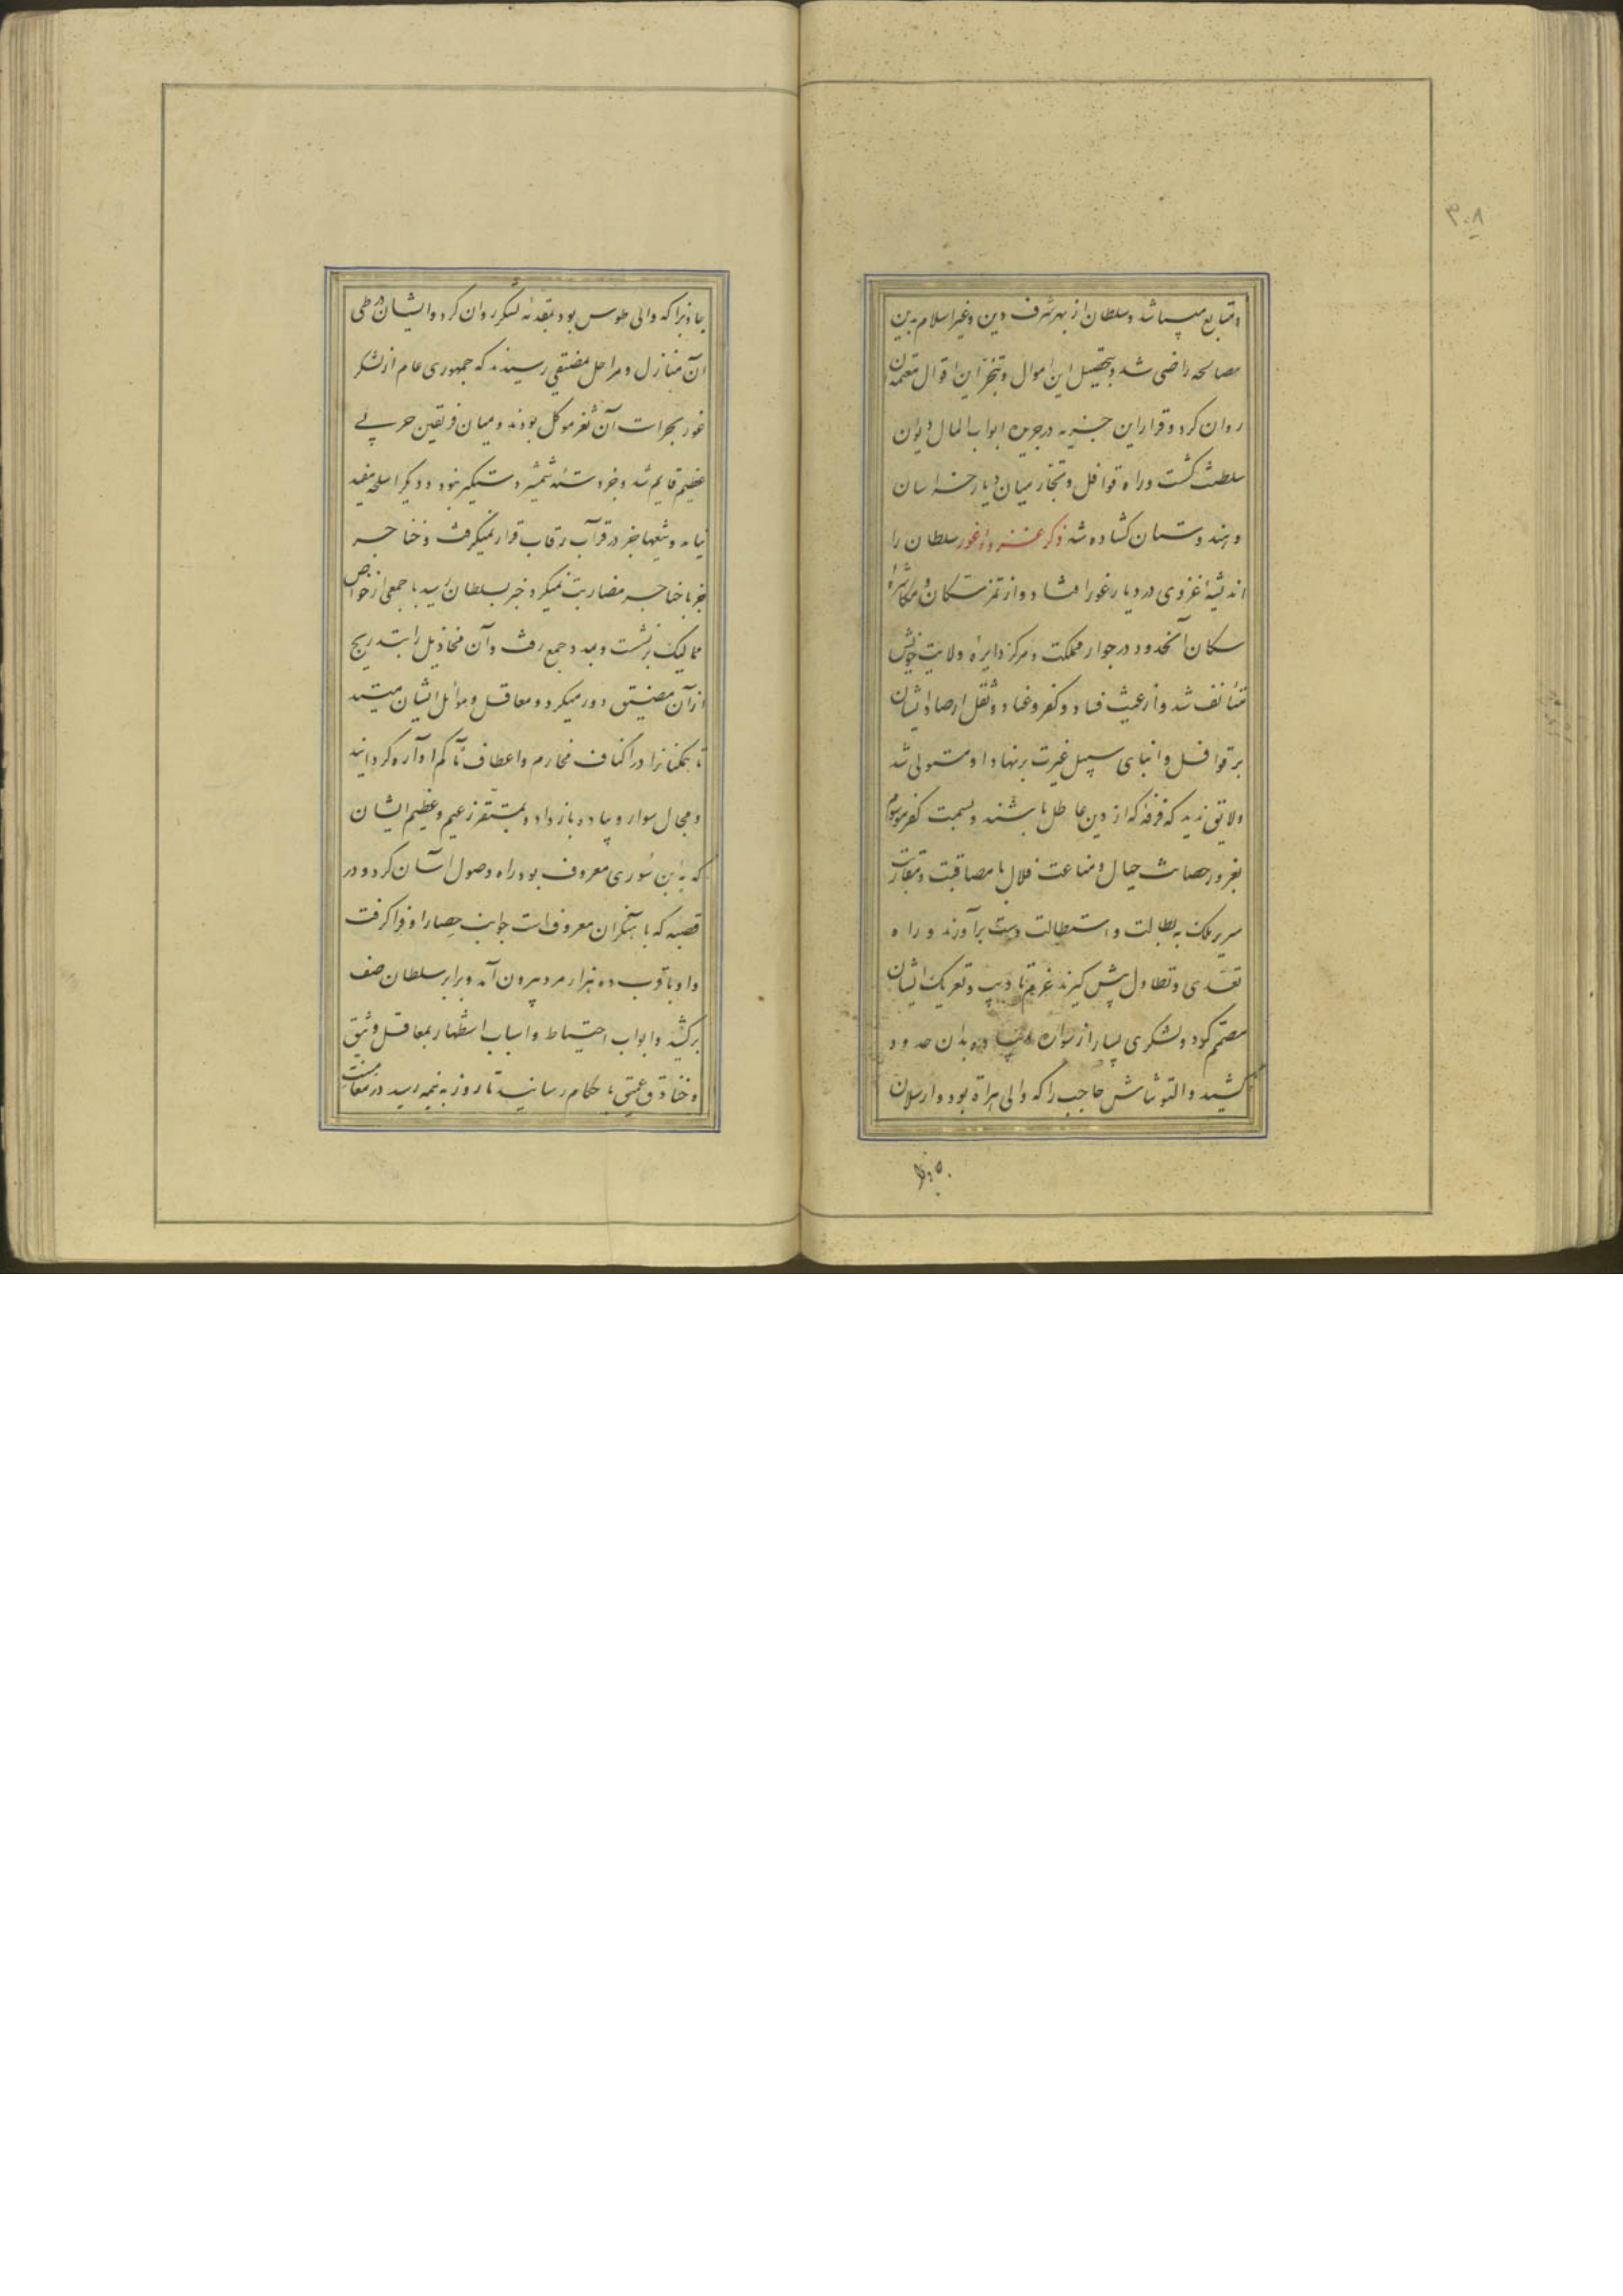 ۳۰۸
و متتابع میباشد و سلطان از بهر شرف دین و غیر اسلام بدین
مصالحه راضی شد و بتحصیل این اموال و تنجز این اقوال معتمدان
روان کرد و قرار این جزیه در جریده ابواب المال دیوان
سلطنت ثبت گشت و راه قوافل و تجار میان دیار خراسان
و هندوستان گشاده شد ذکر غزوه غور سلطان را
اندیشه غزوی در دیار غور افتاد و از تمرد سکان و مکاشره
سکان آنحدود در جوار مملکت و مرکز دایره ولایت خویش
متأنف شد و از عیث فساد و کفر و عناد و ثقل ارصاد ایشان
بر قوافل و ابنای سبیل غیرت بر نهاد او مستولی شد
و لایق ندید که فرقه که از دین عاطل باشند و بسمت کفر موسوم
بغرور حصانت جبال و مناعت قلال با مصاقبت و مقاربت
سریر ملک به بطالت و استطالت دست برآورند و راه
تعدی و تطاول پیش گیرند عزم تأدیب و تعریک ایشان
مصمم کرد و لشکری بسیار از سواره و پیاده بدان حدود
کشید و التونتاش حاجب را که والی هراة بود و ارسلان
جاذب را که والی طوس بود بمقدمه لشکر روان کرد و ایشان در طی
آن منازل و مراحل بمضیقی رسیدند که جمهوری عام از لشکر
غور بحراست آن ثغر موکل بودند و میان فریقین حربی
عظیم قایم شد و جز دسته شمشیر دستگیر نبود و دیگر اسلحه مفید
نیامد و تیغها جز در قراب رقاب قرار نمیگرفت و خناجر
جز با حناجر مضاربت نمیکرد خبر بسلطان رسید با جمعی از خواص
ممالیک برنشست و بمدد جمع رفت و آن مخاذیل را بتدریج
از آن مضیق دور میکرد و معاقل و موائل ایشان میستد
تا همگنانرا در اکناف مخارم و اعطاف آکام آواره گردانید
و مجال سوار و پیاده باز داد و بمستقر زعیم و عظیم ایشان
که به ابن سوری معروف بود راه وصول آسان کرد و در
قصبه که بآهنگران معروفست جوانب حصار او فرا گرفت
و او با قرب ده هزار مرد بیرون آمد و برابر سلطان صف
برکشید و ابواب احتیاط و اسباب استظهار بمعاقل وثیق
و خنادق عمیق باحکام رسانید تا روز به نیمه رسید در مقاسات